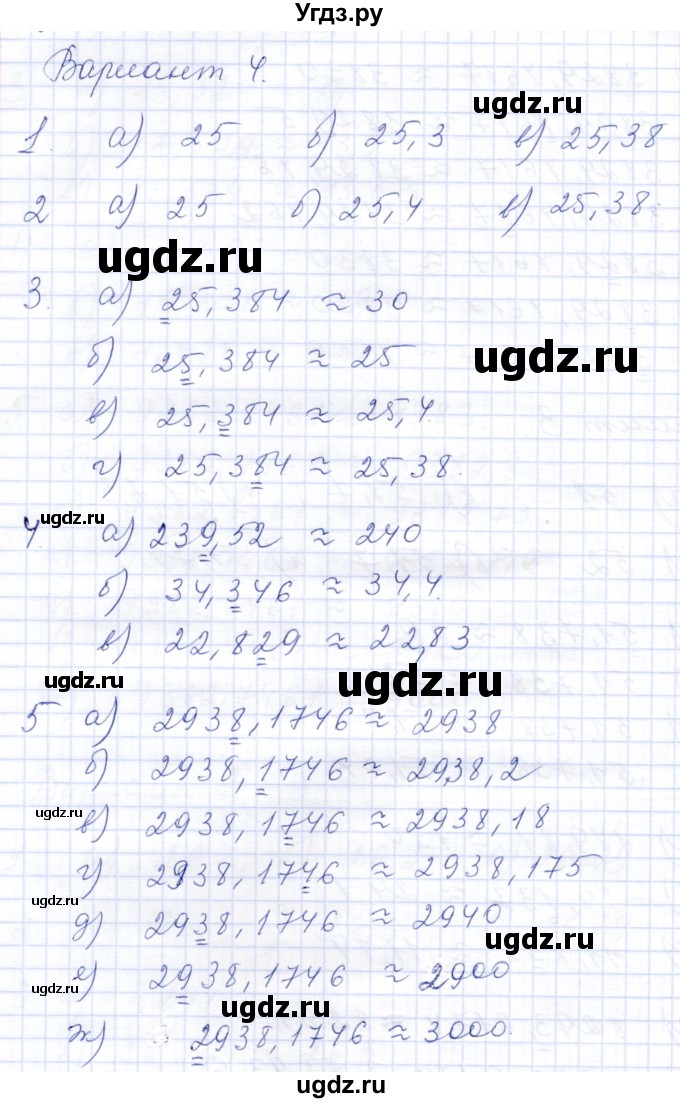 Угдз.ру
Вариант 4.
ugdz.ru
1. а) 25 б) 25,3 в) 25,38
2 а) 25 б) 25,4 в) 25,38
ugdz.ru
3. а) 25,384 ≈ 30
ugdz.ru
б) 25,384 ≈ 25
в) 25,384 ≈ 25,4.
г) 25,384 ≈ 25,38.
ugdz.ru
4. а) 239,52 ≈ 240
б) 34,346 ≈ 34,4.
в) 22,829 ≈ 22,83
ugdz.ru
ugdz.ru
5 а) 2938,1746 ≈ 2938
б) 2938,1746 ≈ 2938,2
ugdz.ru
в) 2938,1746 ≈ 2938,18
г) 2938,1746 ≈ 2938,175
ugdz.ru
д) 2938,1746 ≈ 2940
ugdz.ru
е) 2938,1746 ≈ 2900
ugdz.ru
ugdz.ru
ж) 2938,1746 ≈ 3000.
ugdz.ru